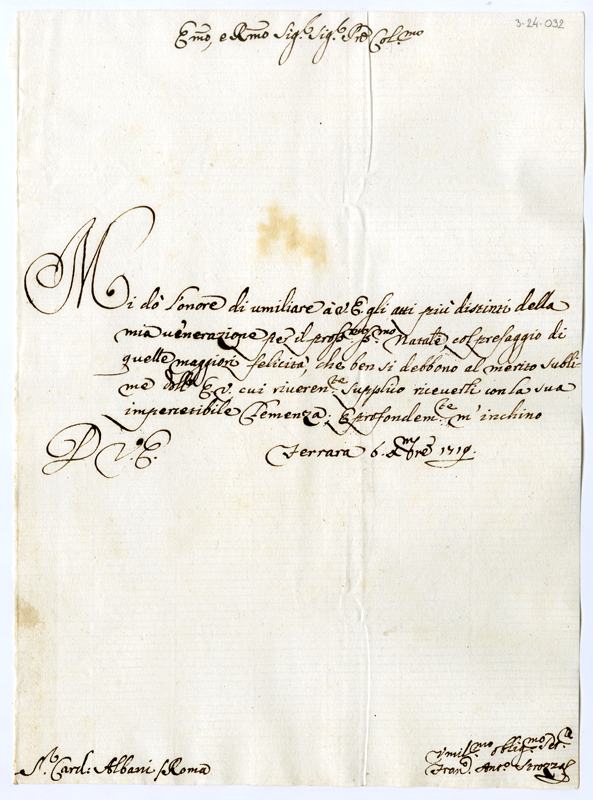 3-24-032
Emo, e Rmo Sig.r Sig.r Pre Col.mo
Mi dò l'onore di umiliare à V.E. gli atti più distinti della
mia venerazione per il pross.mo S.mo Natale col presaggio di
quelle maggiori felicità, che ben si debbono al merito subli-
me dell' E.V. cui riveren.te supplico riceverli con la sua
impercetibile Clemenza; E profondem.te m'inchino
D V.E. Ferrara 6. Xbre 1719.
S.r Card: Albani / Roma
Umil.mo oblig.mo Ser.e
Fran.o Ant.o Strozzi